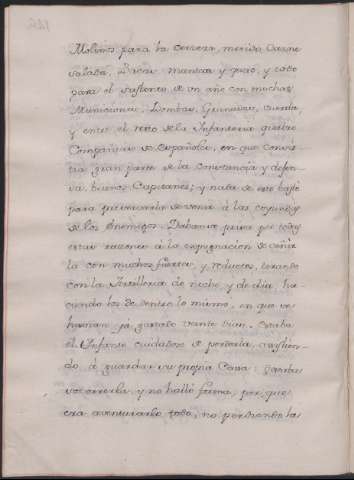 Molinos para la cerveza, mexida, Carne
salada, Bacas, manteca y queso, y todo
para el sustento de un año con muchas
Municiones, Bombas, Granadas, cuerda,
y entre el resto de la Infanteria quatro
Compañias de Españoles, en que consis-
tia gran parte de la constancia y defen-
sa, buenos Capitanes; y nada de esto bastó
para preservarla de venir á las
de los Enemigos. Dabanse priesa por todas
estas razones á la expugnacion de
la con muchos fuertes, y reductos, tirando
con la Artilleria de noche y de dia, ha-
ciendo los de dentro lo mismo, en que se
havian ya gastado veinte dias. Estaba
el Infante cuidadoso de perderla, asistien-
do, á guardar su propia Casa;
socorrerla, y no halló forma, por que
era aventurarlo todo, no pudiendo la